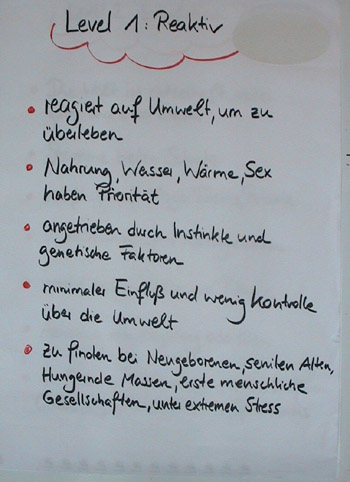 Level 1: Reaktiv
• reagiert auf Umwelt, um zu
überleben
• Nahrung, Wasser, Wärme, Sex
haben Priorität
• angetrieben durch Instinkte und
genetische Faktoren
• minimaler Einfluß und wenig Kontrolle
über die Umwelt
• zu finden bei Neugeborenen, senilen Alten,
Hungernde Massen, erste menschliche
Gesellschaften, unter extremen Stress